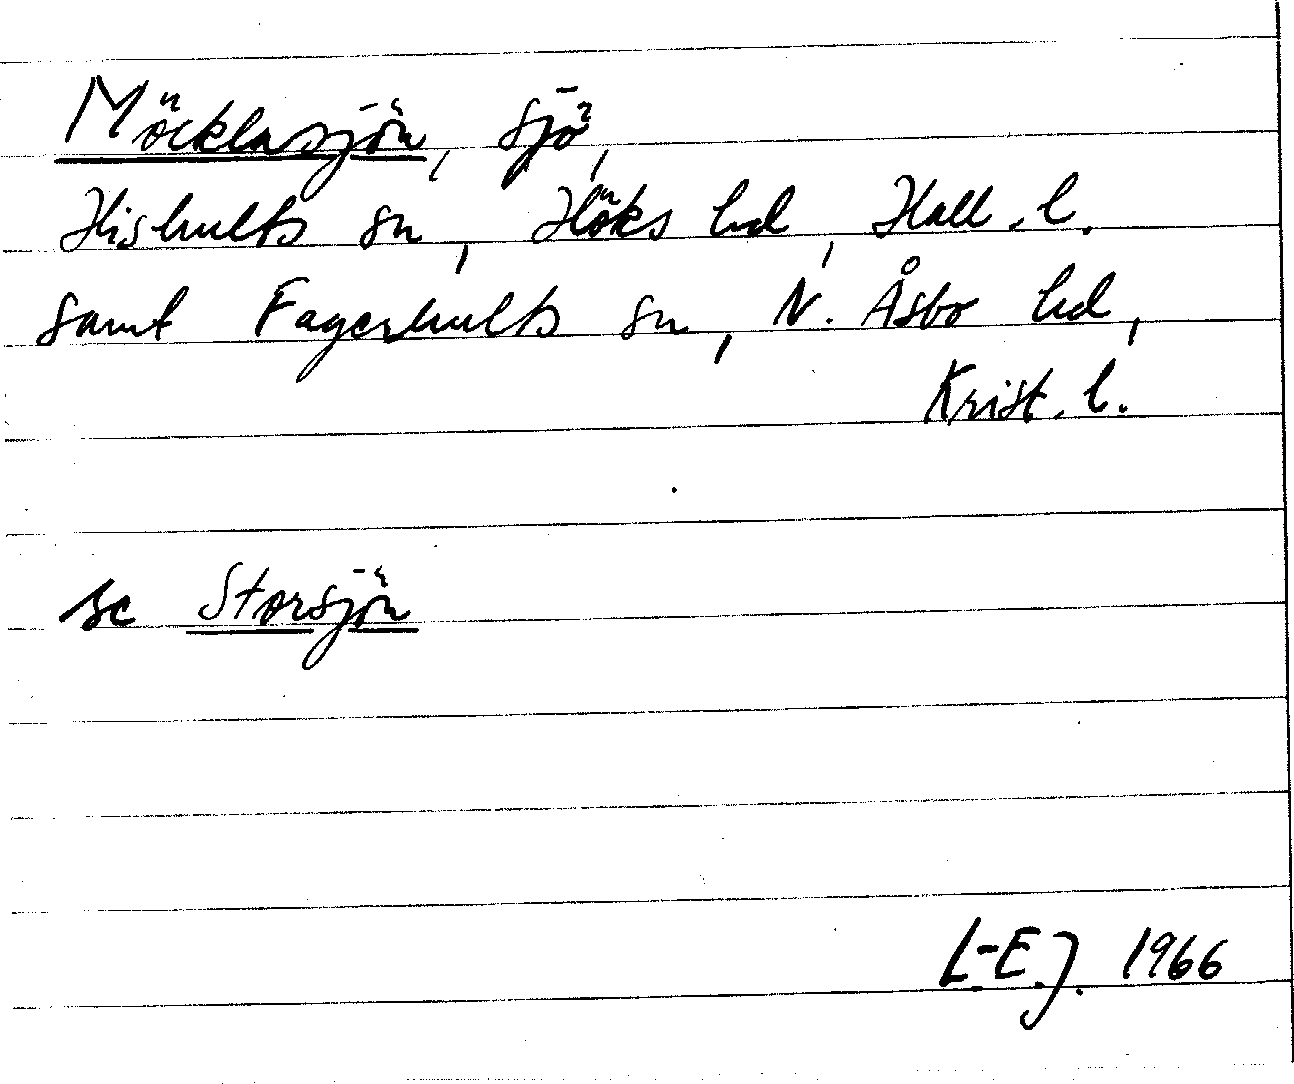 Möcklasjön, sjö,
Hishults sn, Höks hd, Hall. l.
samt Fagerhults sn, N. Åsbo hd,
Krist. l.
se Storsjön
L-E.J. 1966